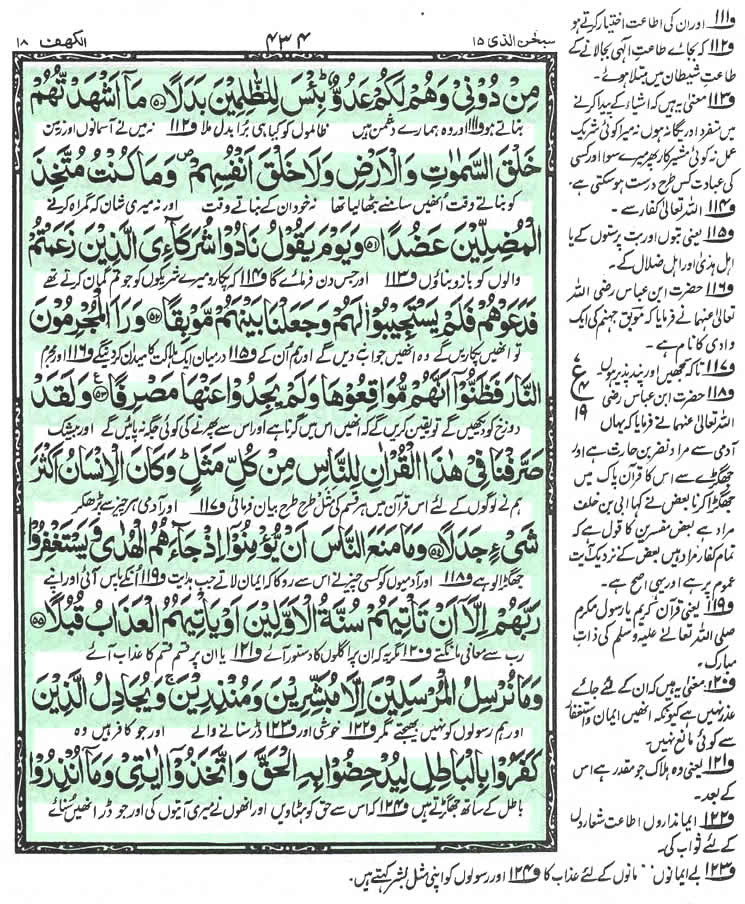 سبحٰن الذی ۱۵
۴۳۴
الکھف ۱۸
مِنْ دُوْنِیْ وَهُمْ لَكُمْ عَدُوٌّ ؕ بِئْسَ لِلظّٰلِمِیْنَ بَدَلًا ﴿۵۰﴾ مَاۤ اَشْهَدْتُّهُمْ
بناتے ہو و۱۱۱ اور وہ ہمارے دشمن ہیں ظالموں کو کیا ہی برا بدل ملا و۱۱۲ نہ میں نے آسمانوں اور زمین
خَلْقَ السَّمٰوٰتِ وَالْاَرْضِ وَلَا خَلْقَ اَنْفُسِهِمْ ۪ وَمَا كُنْتُ مُتَّخِذَ
کو بناتے وقت انھیں سامنے بٹھالیا تھا نہ خود ان کے بناتے وقت اور نہ میری شان کہ گمراہ کرنے
الْمُضِلِّیْنَ عَضُدًا ﴿۵۱﴾ وَیَوْمَ یَقُوْلُ نَادُوْا شُرَكَآءِیَ الَّذِیْنَ زَعَمْتُمْ
والوں کو بازو بناؤں و۱۱۳ اور جس دن فرمائے گا و۱۱۴ کہ پکارو میرے شریکوں کو جو تم گمان کرتے تھے
فَدَعَوْهُمْ فَلَمْ یَسْتَجِیْبُوْا لَهُمْ وَجَعَلْنَا بَیْنَهُمْ مَّوْبِقًا ﴿۵۲﴾ وَرَاَ الْمُجْرِمُوْنَ
تو انھیں پکاریں گے وہ انھیں جواب نہ دیں گے اور ہم اُن کے و۱۱۵ درمیان ایک ہلاکت کا میدان کردیں گے و۱۱۶ اور مجرم
النَّارَ فَظَنُّوْۤا اَنَّهُمْ مُّوَاقِعُوْهَا وَلَمْ یَجِدُوْا عَنْهَا مَصْرِفًا ﴿۵۳﴾ وَلَقَدْ
دوزخ کو دیکھیں گے تو یقین کریں گے کہ انھیں اس میں گرنا ہے اور اس سے پھرنے کی کوئی جگہ نہ پائیں گے اور بیشک
صَرَّفْنَا فِیْ هٰذَا الْقُرْاٰنِ لِلنَّاسِ مِنْ كُلِّ مَثَلٍ ؕ وَكَانَ الْاِنْسَانُ اَكْثَرَ
ہم نے لوگوں کے لئے اس قرآن میں ہر قسم کی مثل طرح طرح بیان فرمائی و۱۱۷ اور آدمی ہر چیز سے بڑھ کر
شَیْءٍ جَدَلًا ﴿۵۴﴾ وَمَا مَنَعَ النَّاسَ اَنْ یُّؤْمِنُوْۤا اِذْ جَآءَهُمُ الْهُدٰی وَیَسْتَغْفِرُوْا
جھگڑالو ہے و۱۱۸ اور آدمیوں کو کسی چیز نے اس سے روکا کہ ایمان لاتے جب ہدایت و۱۱۹ اُنکے پاس آئی اور اپنے
رَبَّهُمْ اِلَّاۤ اَنْ تَاْتِیَهُمْ سُنَّةُ الْاَوَّلِیْنَ اَوْ یَاْتِیَهُمُ الْعَذَابُ قُبُلًا ﴿۵۵﴾
رب سے معافی مانگتے و۱۲۰ مگر یہ کہ ان پر اگلوں کا دستور آئے و۱۲۱ یا ان پر قسم قسم کا عذاب آئے
وَمَا نُرْسِلُ الْمُرْسَلِیْنَ اِلَّا مُبَشِّرِیْنَ وَمُنْذِرِیْنَ ۚ وَیُجَادِلُ الَّذِیْنَ
اور ہم رسولوں کو نہیں بھیجتے مگر و۱۲۲ خوشی اور و۱۲۳ ڈر سنانے والے اور جو کافر ہیں وہ
كَفَرُوْا بِالْبَاطِلِ لِیُدْحِضُوْا بِهِ الْحَقَّ وَاتَّخَذُوْۤا اٰیٰتِیْ وَمَاۤ اُنْذِرُوْا
باطل کے ساتھ جھگڑتے ہیں و۱۲۴ کہ اس سے حق کو ہٹادیں اور انھوں نے میری آیتوں کی اور جو ڈر انھیں سُنائے
و۱۱۱ اور ان کی اطاعت اختیار کرتے ہو
و۱۱۲ کہ بجائے طاعتِ الٰہی بجالانے کے
طاعتِ شیطان میں مبتلا ہوئے۔
و۱۱۳ معنٰی یہ ہیں کہ اشیاء کے پیدا کرنے
میں متفرد اور یگانہ ہوں نہ میرا کوئی شریک
عمل نہ کوئی مشیر کار پھر میرے سوا اور کسی
کی عبادت کس طرح درست ہوسکتی ہے۔
و۱۱۴ اللہ تعالیٰ کفار سے۔
و۱۱۵ یعنی بتوں اور بت پرستوں کے یا
اہل ہدیٰ اور اہل ضلال کے۔
و۱۱۶ حضرت ابن عباس رضی اللہ
تعالیٰ عنہما نے فرمایا کہ موبق جہنم کی ایک
وادی کا نام ہے۔
و۱۱۷ تاکہ سمجھیں اور پند پذیر ہوں
و۱۱۸ حضرت ابن عباس رضی
اللہ تعالیٰ عنہما نے فرمایا کہ یہاں
ع ۱۹
آدمی سے مراد نضر بن حارث ہے اور
جھگڑے سے اس کا قرآن پاک میں
جھگڑا کرنا بعض نے کہا ابی بن خلف
مراد ہے بعض مفسرین کا قول ہے کہ
تمام کفار مراد ہیں بعض کے نزدیک آیت
عموم پر ہے اور یہی اصح ہے۔
و۱۱۹ یعنی قرآن کریم یا رسول مکرم
صلی اللہ تعالیٰ علیہ وسلم کی ذات
مبارک۔
و۱۲۰ معنٰی یہ ہیں کہ ان کے لئے جائے
عذر نہیں ہے کیونکہ انھیں ایمان و استغفار
سے کوئی مانع نہیں۔
و۱۲۱ یعنی وہ ہلاک جو مقدر ہے اس
کے بعد۔
و۱۲۲ ایمانداروں اطاعت شعاروں
کے لئے ثواب کی۔
و۱۲۳ بے ایمانوں مانوں کے لئے عذاب کا و۱۲۴ اور رسولوں کو اپنی مثل بشر کہتے ہیں۔